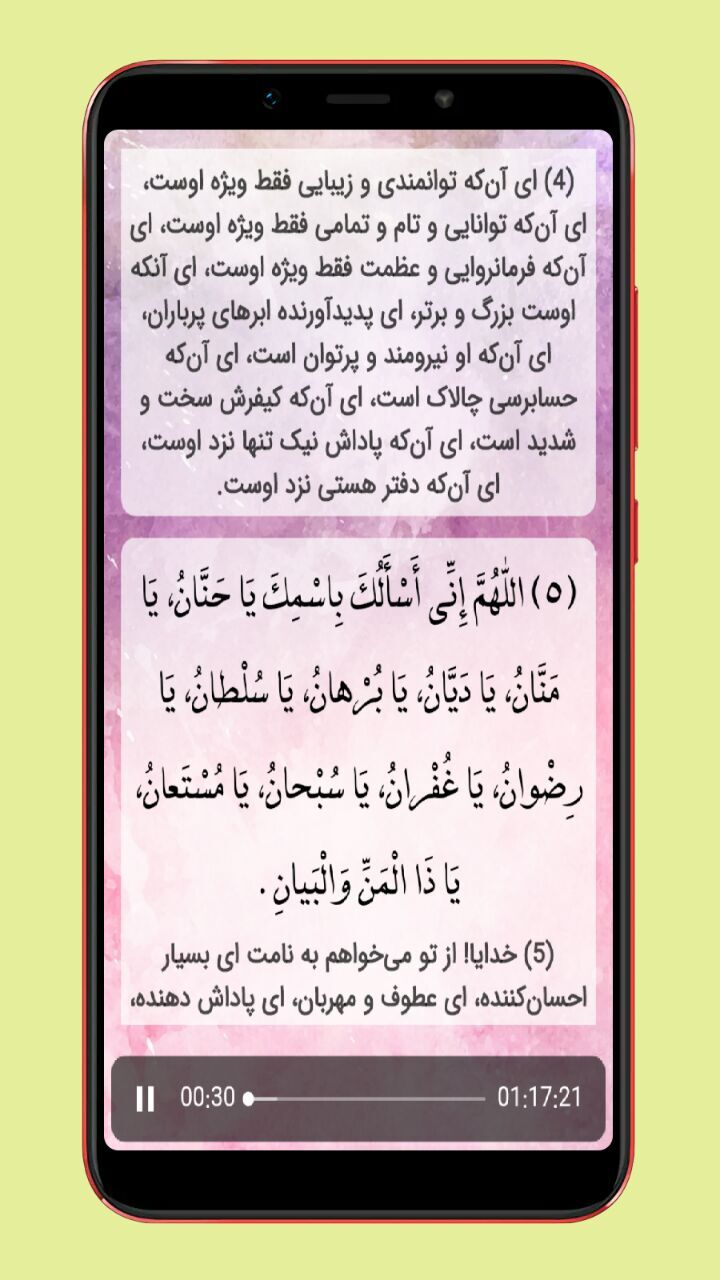 (4) ای آن‌که توانمندی و زیبایی فقط ویژه اوست،
ای آن‌که توانایی و تام و تمامی فقط ویژه اوست، ای
آن‌که فرمانروایی و عظمت فقط ویژه اوست، ای آنکه
اوست بزرگ و برتر، ای پدیدآورنده ابرهای پرباران،
ای آن‌که او نیرومند و پرتوان است، ای آن‌که
حسابرسی چالاک است، ای آن‌که کیفرش سخت و
شدید است، ای آن‌که پاداش نیک تنها نزد اوست،
ای آن‌که دفتر هستی نزد اوست.
(٥) اللّٰهُمَّ إِنِّى أَسْأَلُكَ بِاسْمِكَ يَا حَنَّانُ، يَا
مَنَّانُ، يَا دَيَّانُ، يَا بُرْهانُ، يَا سُلْطانُ، يَا
رِضْوانُ، يَا غُفْرانُ، يَا سُبْحانُ، يَا مُسْتَعانُ،
يَا ذَا الْمَنِّ وَالْبَيانِ .
(5) خدایا! از تو می‌خواهم به نامت ای بسیار
احسان‌کننده، ای عطوف و مهربان، ای پاداش دهنده،
00:30 01:17:21